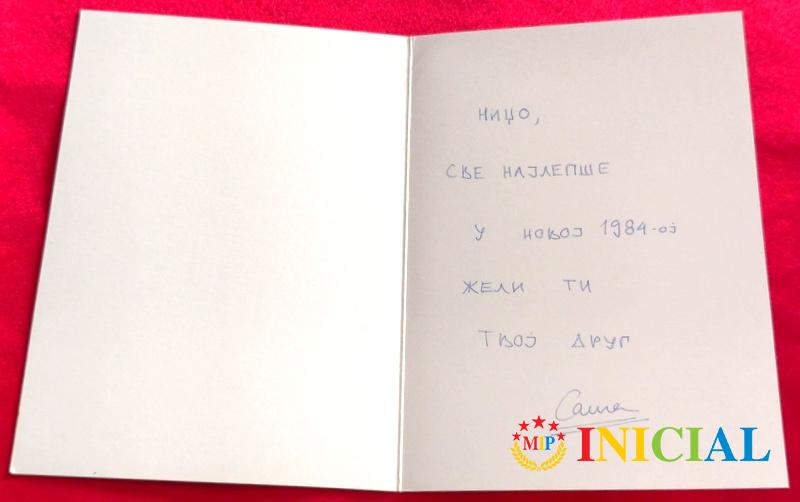 НИЏО,
СВЕ НАЈЛЕПШЕ
У НОВОЈ 1984-ОЈ
ЖЕЛИ ТИ
ТВОЈ ДРУГ
Саша
MIP INICIAL